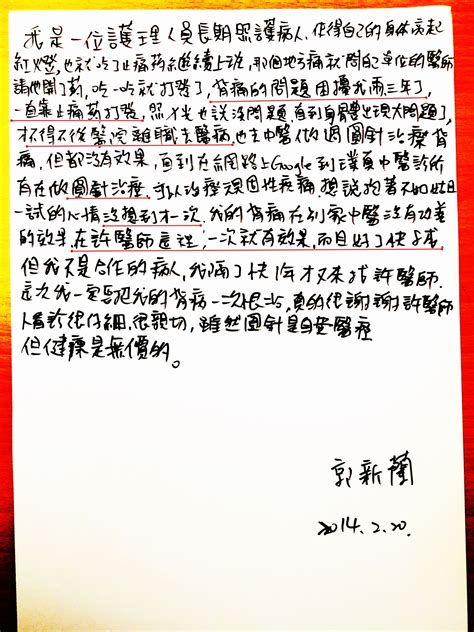 我是一位護理人員長期照護病人,使得自己的身体亮起
紅燈,也就吃了止痛葯繼續上班,那個地方痛就問自己單位的醫師
請他開了葯,吃一吃就打發了,背痛的問題困擾我兩三年了,
一直靠止痛葯打發,照X光也說沒問題直到身體出現大問題了,
才不得不從醫院離職去醫病也去中醫做過圓針治療背
痛,但都沒有效果,直到在網路上Google到漢真中醫診所
有在做圓針治療,可以治療頑固性疼痛,想說抱著不如姑且
一試的心情沒想到才一次,我的背痛在別家中醫沒有改善
的效果,在許醫師這裡,一次就有效果,而且好了快8成
但我不是合作的病人,我隔了快1年才又來找許醫師.
這次我一定要把我的背痛一次根治,真的很謝謝許醫師
人看診很仔細,很親切,雖然圓針是自費醫療
但健康是無價的。
郭新蘭
2014.2.20.